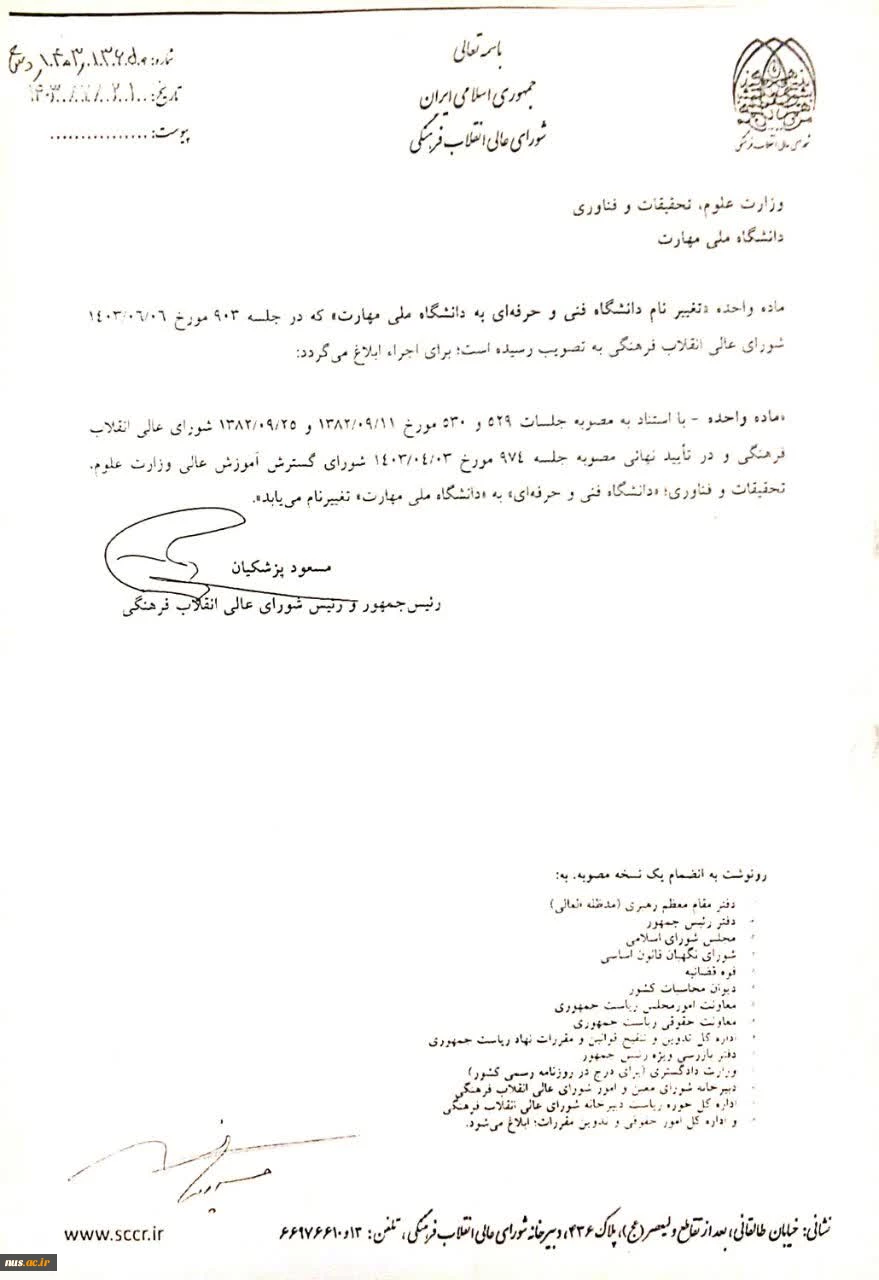 باسمه تعالی
جمهوری اسلامی ایران
شورای عالی انقلاب فرهنگی
شماره:
تاریخ:
پیوست: ................
شورای عالی انقلاب فرهنگی
وزارت علوم، تحقیقات و فناوری
دانشگاه ملی مهارت
ماده واحده «تغییر نام دانشگاه فنی و حرفه‌ای به دانشگاه ملی مهارت» که در جلسه ۹۰۳ مورخ ۱۴۰۳/۰۶/۰۶
شورای عالی انقلاب فرهنگی به تصویب رسیده است؛ برای اجراء ابلاغ می‌گردد:
«ماده واحده - با استناد به مصوبه جلسات ۵۲۹ و ۵۳۰ مورخ ۱۳۸۲/۰۹/۱۱ و ۱۳۸۲/۰۹/۲۵ شورای عالی انقلاب
فرهنگی و در تأیید نهائی مصوبه جلسه ۹۷۴ مورخ ۱۴۰۳/۰۴/۰۳ شورای گسترش آموزش عالی وزارت علوم،
تحقیقات و فناوری؛ «دانشگاه فنی و حرفه‌ای» به «دانشگاه ملی مهارت» تغییرنام می‌یابد».
مسعود پزشکیان
رئیس‌جمهور و رئیس شورای عالی انقلاب فرهنگی
رونوشت به انضمام یک نسخه مصوبه، به:
دفتر مقام معظم رهبری (مدظله العالی)
دفتر رئیس جمهور
مجلس شورای اسلامی
شورای نگهبان قانون اساسی
قوه قضائیه
دیوان محاسبات کشور
معاونت امورمجلس ریاست جمهوری
معاونت حقوقی ریاست جمهوری
اداره کل تدوین و تنقیح قوانین و مقررات نهاد ریاست جمهوری
دفتر بازرسی ویژه رئیس جمهور
وزارت دادگستری (برای درج در روزنامه رسمی کشور)
دبیرخانه شورای معین و امور شورای عالی انقلاب فرهنگی
اداره کل حوزه ریاست دبیرخانه شورای عالی انقلاب فرهنگی
و اداره کل امور حقوقی و تدوین مقررات؛ ابلاغ می‌شود.
نشانی: خیابان طالقانی، بعد از تقاطع ولیعصر (عج)، پلاک ۴۳۶، دبیرخانه شورای عالی انقلاب فرهنگی، تلفن: ۱۳و۶۶۹۷۶۶۱۰
www.sccr.ir
nus.ac.ir